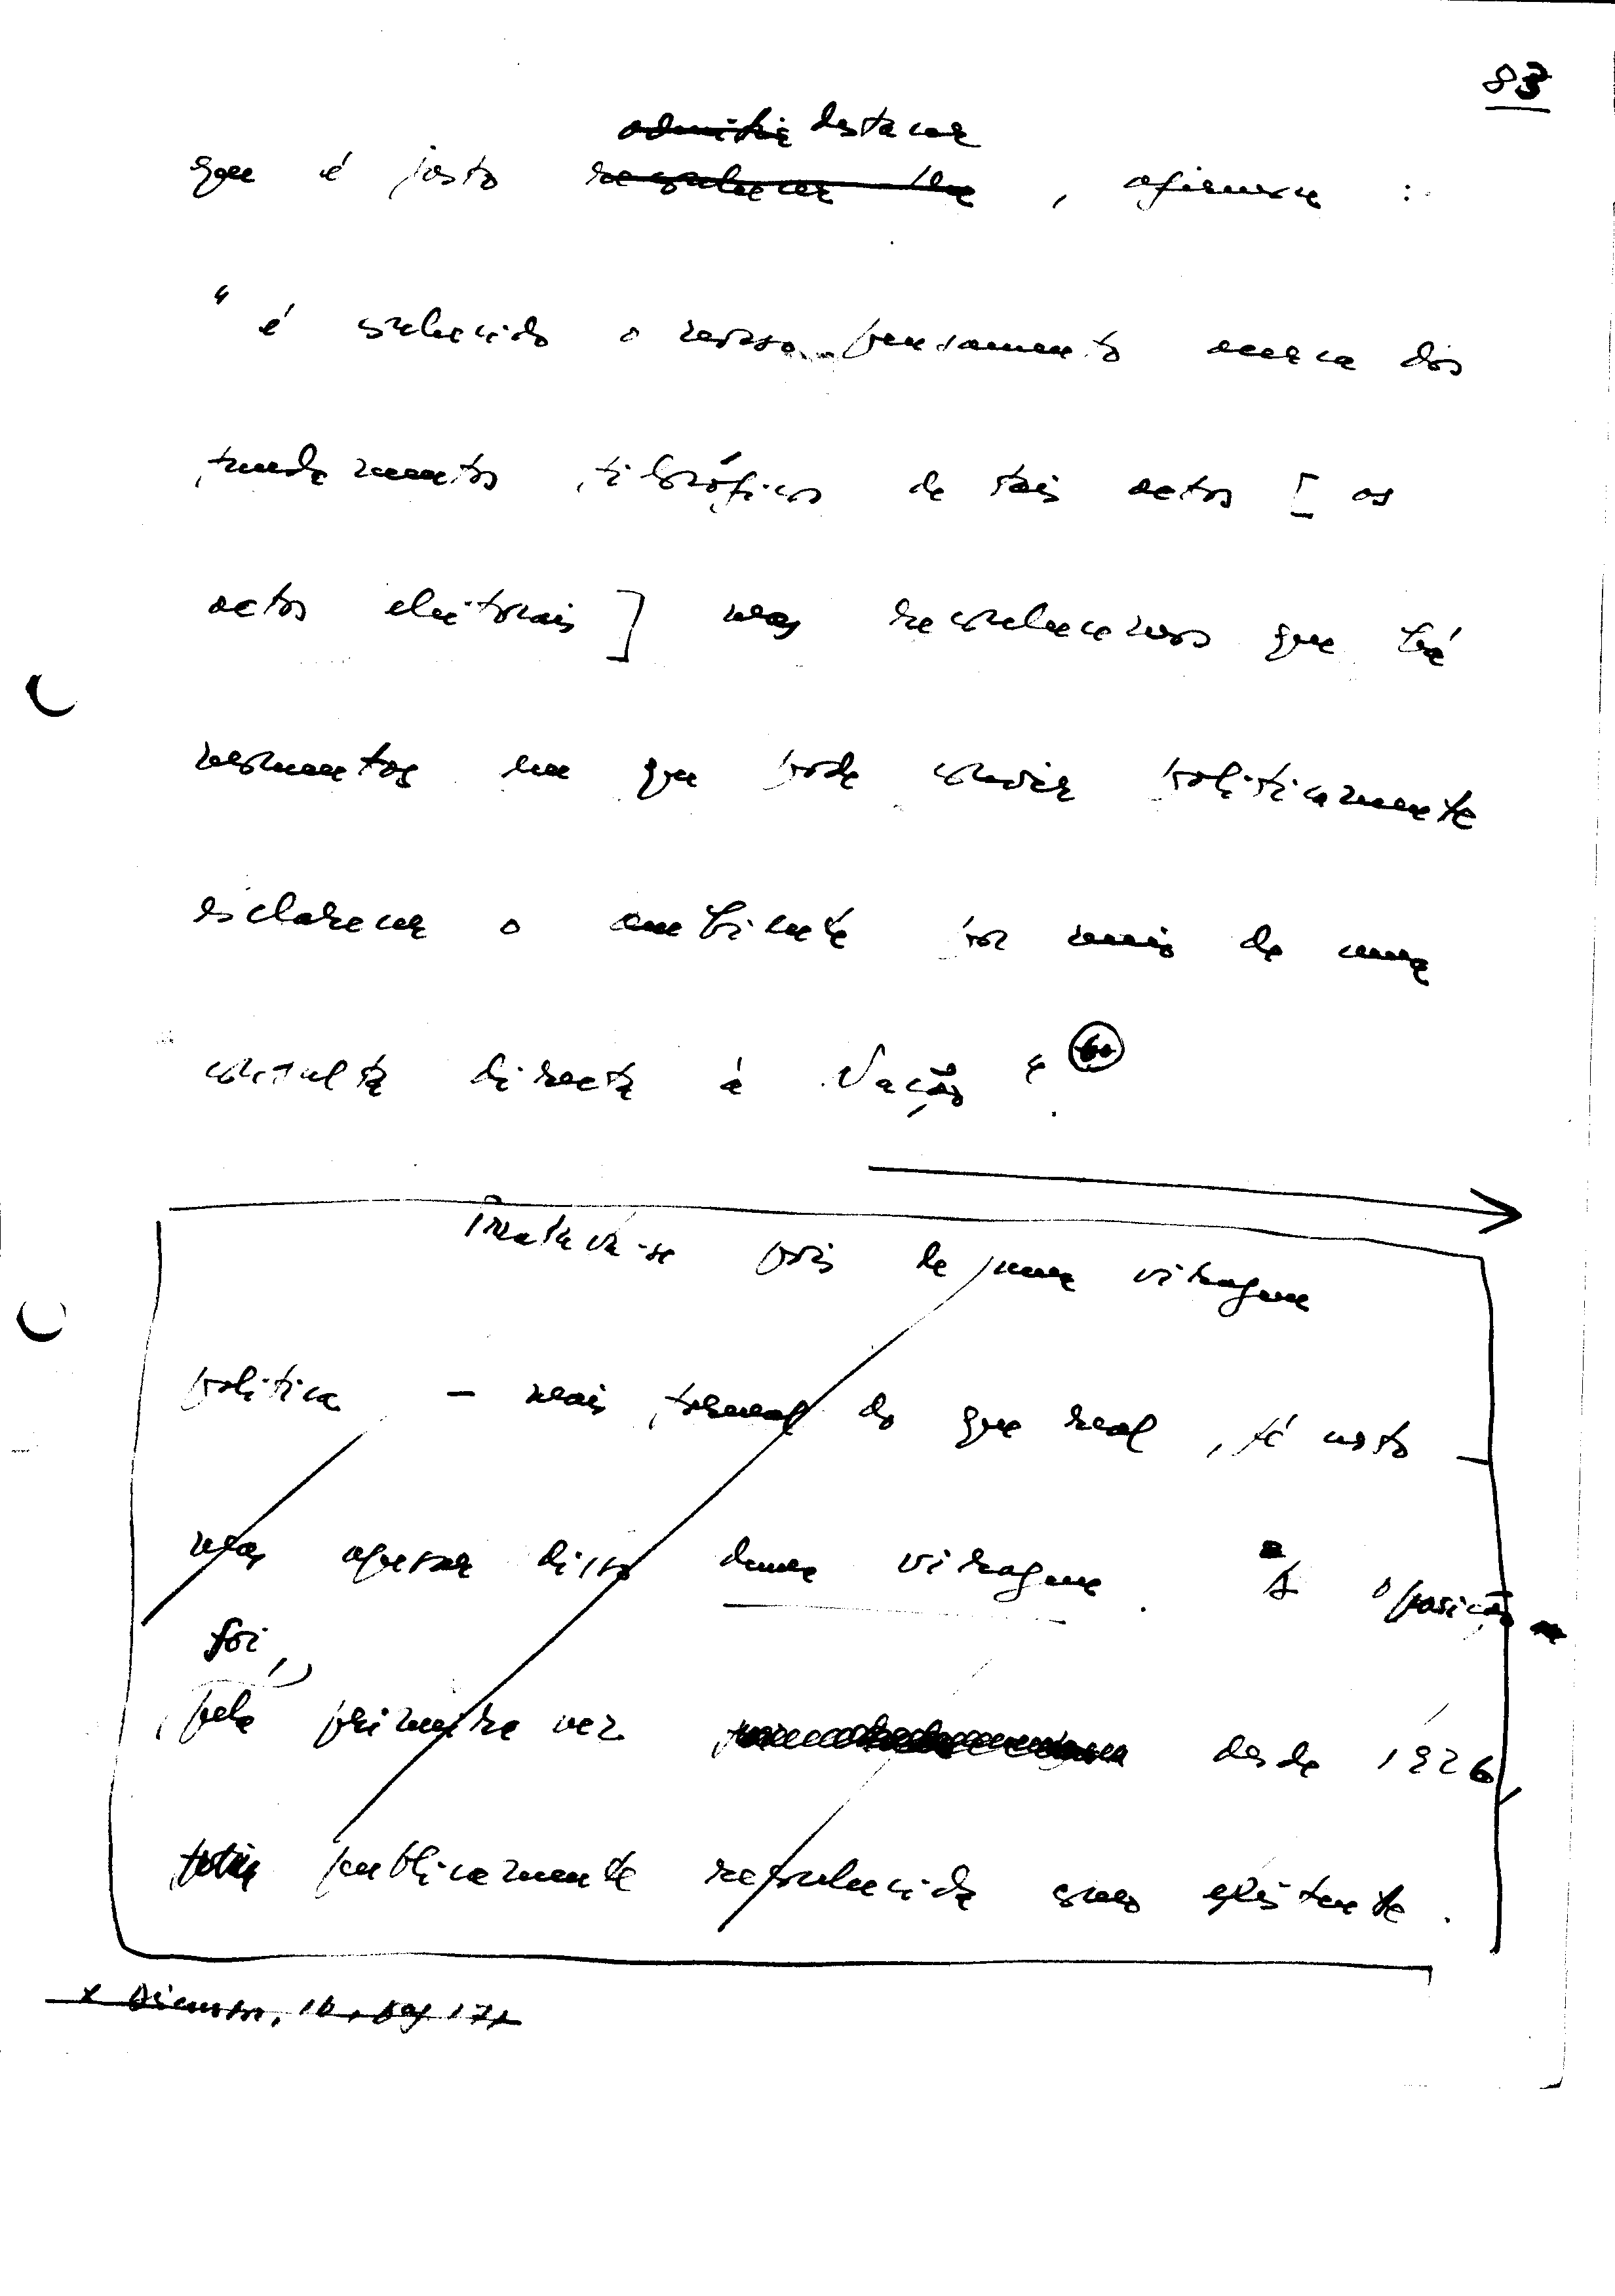 83
admitir destacar
que é justo reconhecer-lhe, afirmara :
" é conhecido o nosso pensamento acerca dos
fundamentos filosóficos de tais actos [ os
actos eleitorais ] mas reconhecemos que há
momentos em que pode convir politicamente
esclarecer o ambiente por mais de uma
consulta directa à Nação " 60.
Tratava-se pois de uma viragem
política - mais formal do que real, é certo -
mas apesar disso duma viragem. A oposição
foi,
pela primeira vez desde 1926,
publicamente reconhecida como existente.
x Discursos, 1º, pag 171